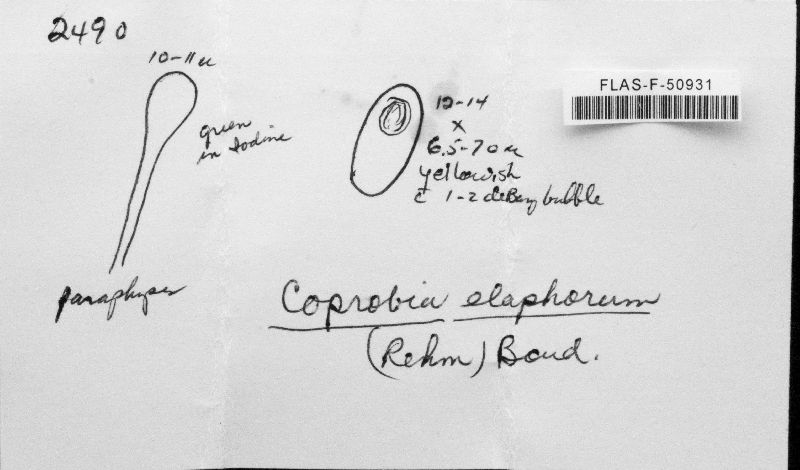 2490
10-11 u
green
in Iodine
paraphyses
12-14
x
6.5-7.0 u
yellowish
c̄ 1-2 deBary bubble
FLAS-F-50931
Coprobia elaphorum
(Rehm) Boud.